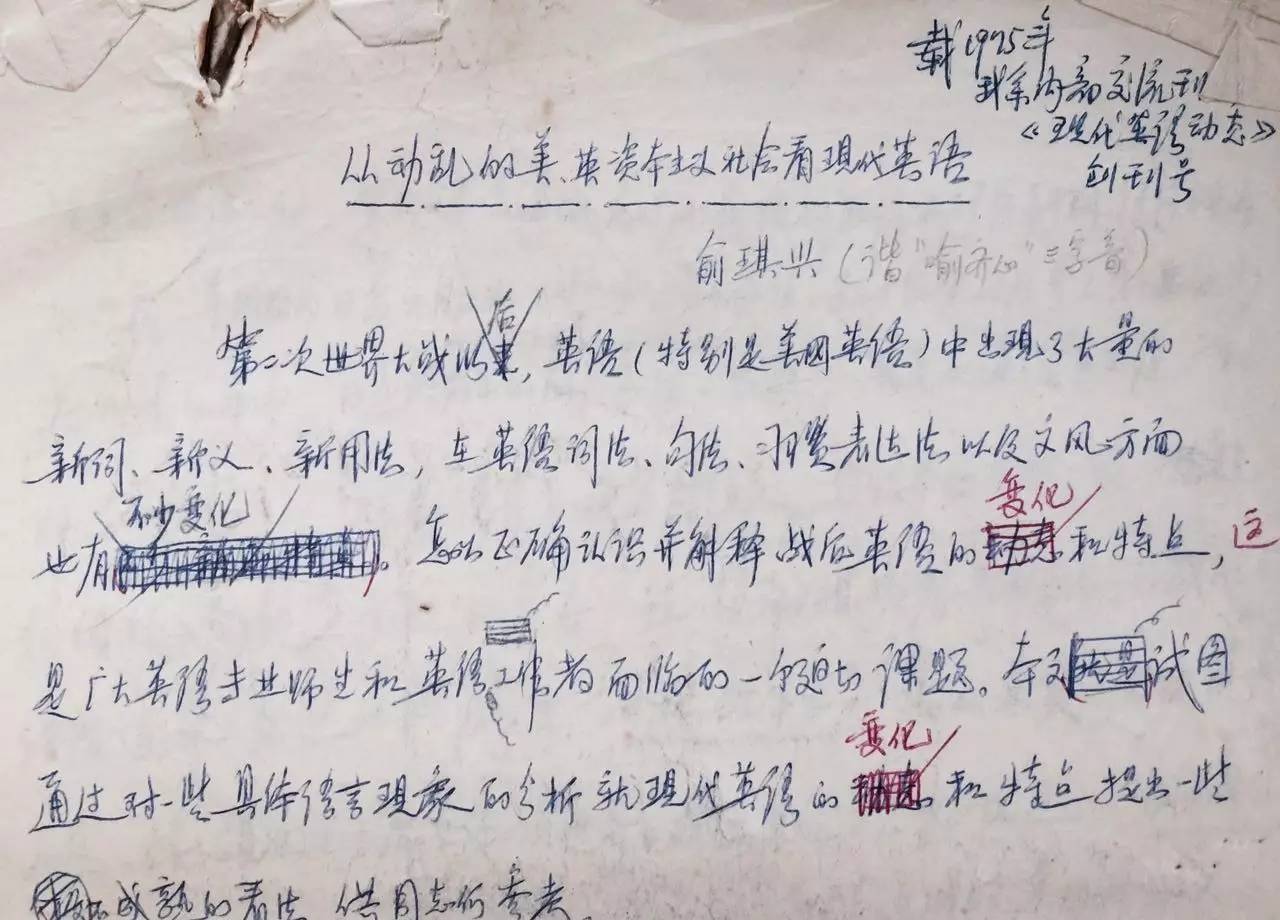 载1975年
我系内部交流刊
《现代英语动态》
创刊号
从动乱的美、英资本主义社会看现代英语
俞琪兴（谐“喻齐心”三字音）
后
第二次世界大战以来，英语（特别是美国英语）中出现了大量的
新词、新义、新用法，在英语词法、句法、习惯表达法以及文风方面
不少变化
变化
也有。怎么正确认识并解释战后英语的和特点，这
是广大英语专业师生和英语工作者面临的一个迫切课题。本文试图
变化
通过对一些具体语言现象的分析就现代英语的和特点提出一些
成熟的看法，供同志们参考。